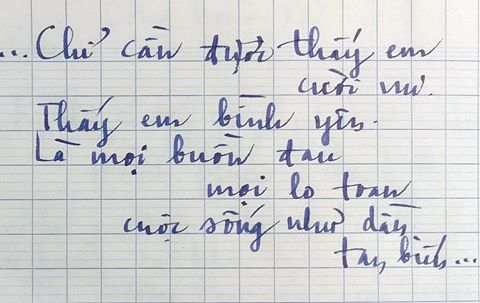 ... Chỉ cần được thấy em
cười vui.
Thấy em bình yên.
Là mọi buồn đau
mọi lo toan
cuộc sống như dần
tan biến...